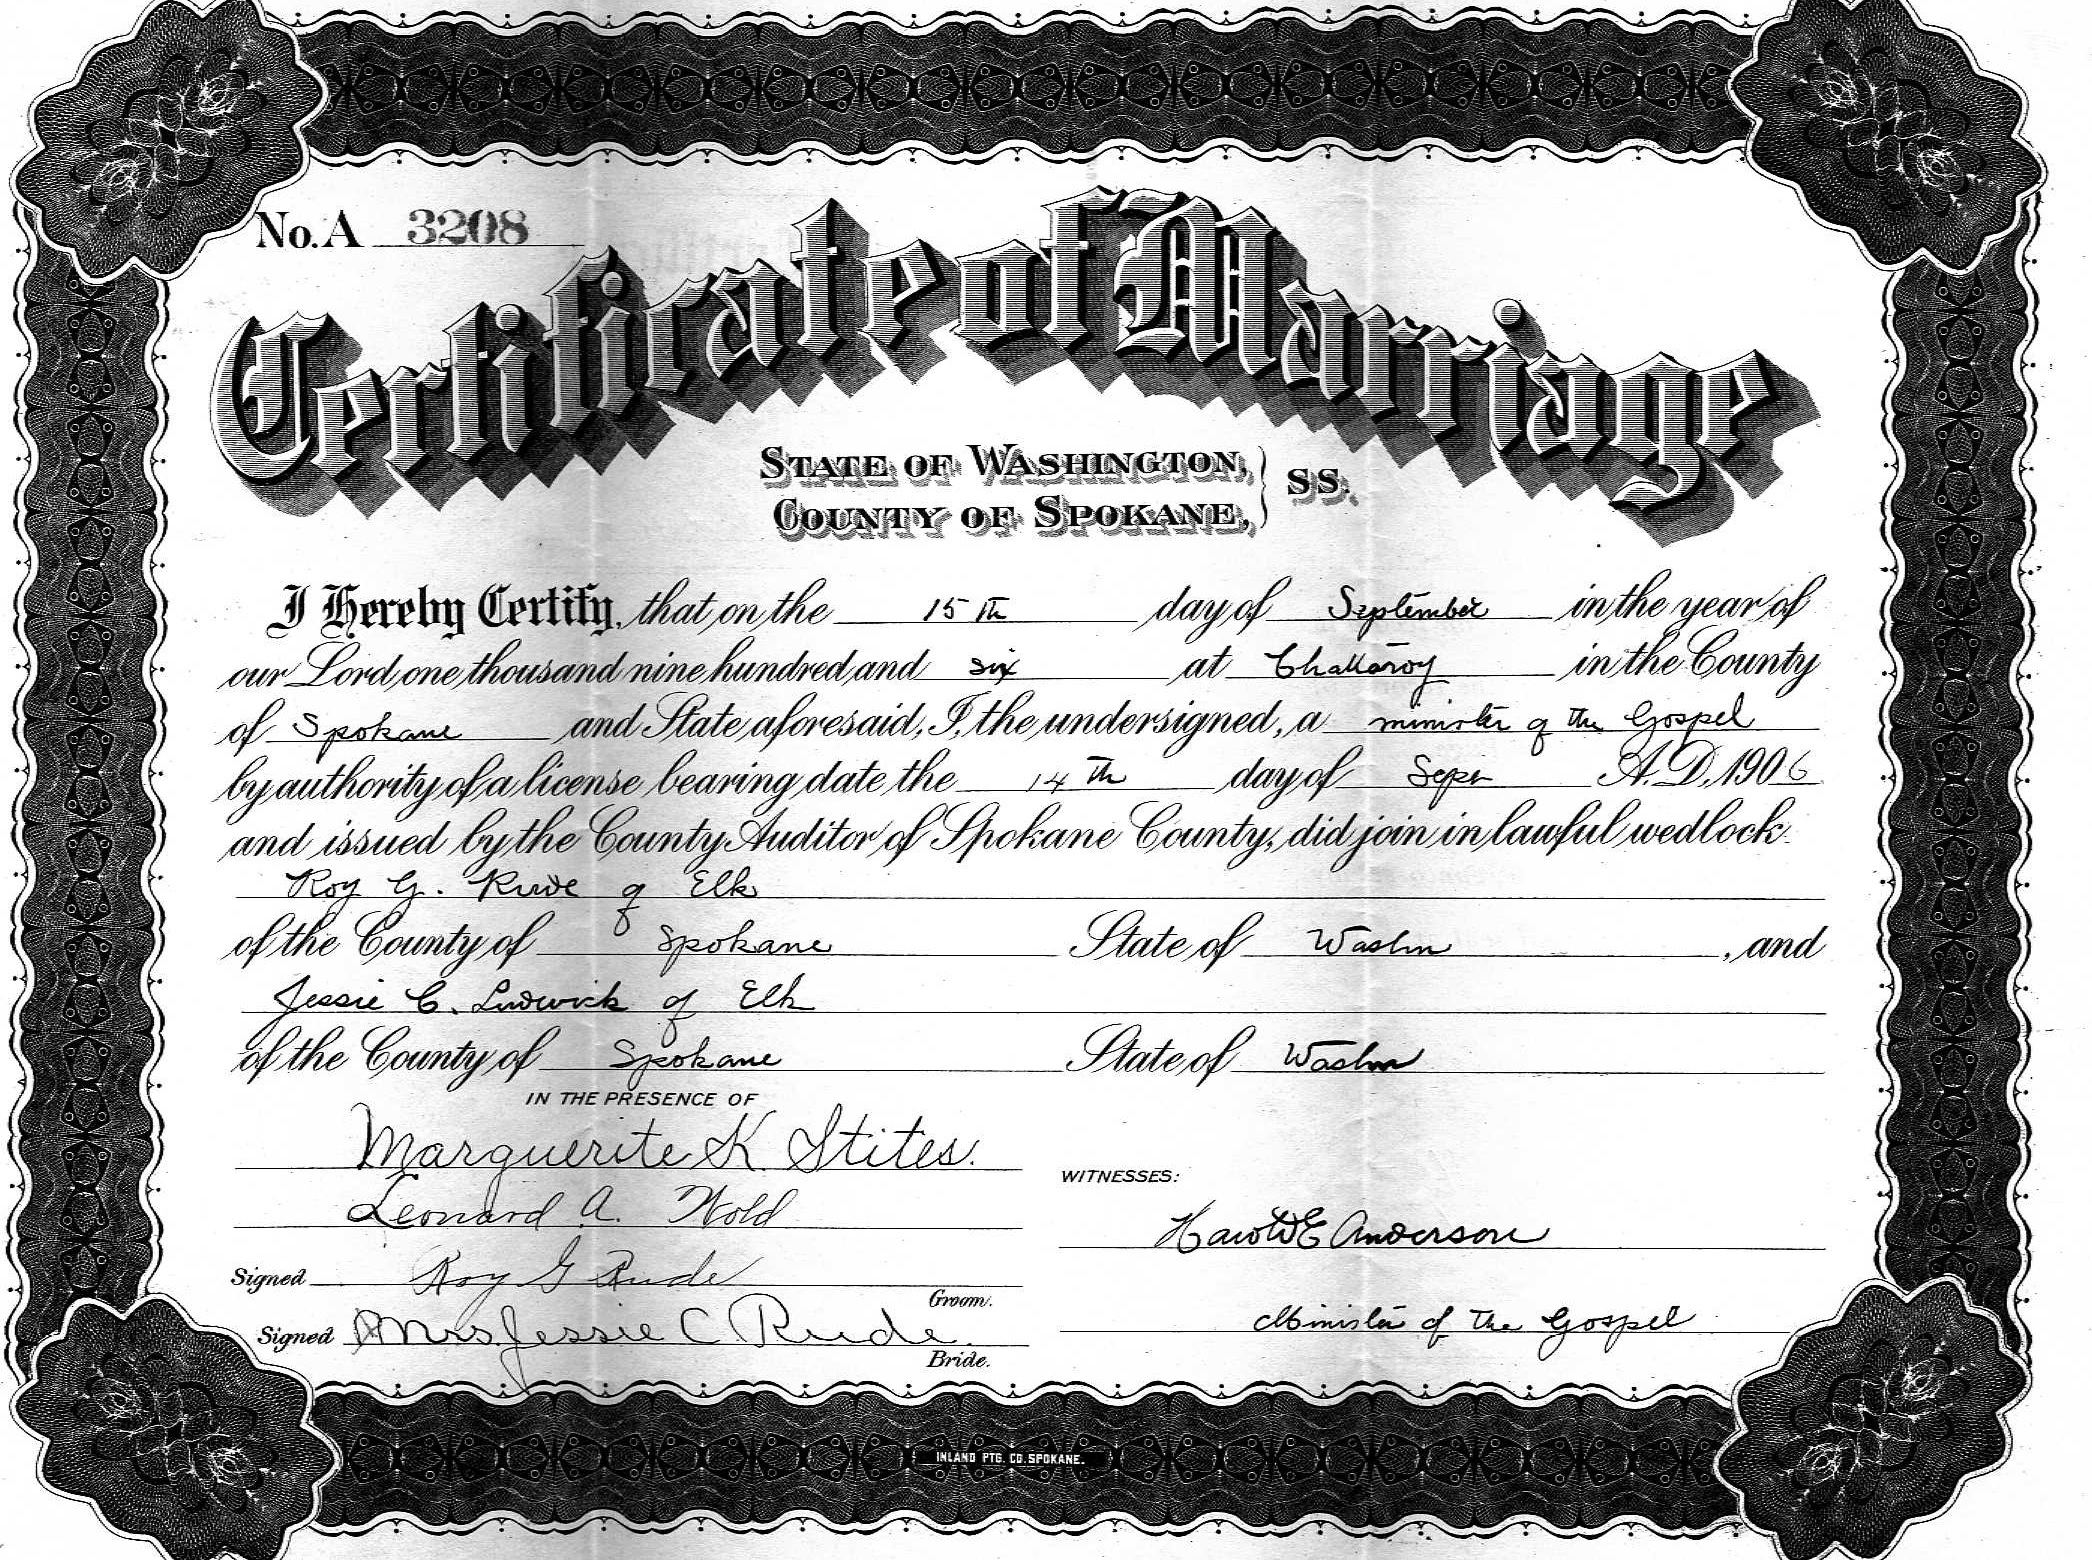 No. A 3208
Certificate of Marriage
STATE OF WASHINGTON,
COUNTY OF SPOKANE, } SS.
I Hereby Certify, that on the 15th day of September in the year of
our Lord, one thousand nine hundred and six at Chattaroy in the County
of Spokane and State aforesaid, I, the undersigned, a minister of the Gospel
by authority of a license bearing date the 14th day of Sept A. D. 1906
and issued by the County Auditor of Spokane County, did join in lawful wedlock
Roy G. Rude of Elk
of the County of Spokane State of Washn, and
Jessie C. Ludwick of Elk
of the County of Spokane State of Washn
IN THE PRESENCE OF
Marguerite K. Stites.
WITNESSES:
Leonard A. Wold
Harold E Anderson
Signed Roy G Rude
Groom.
Minister of the Gospel
Signed Mrs. Jessie C Rude.
Bride.
INLAND PTG. CO. SPOKANE.